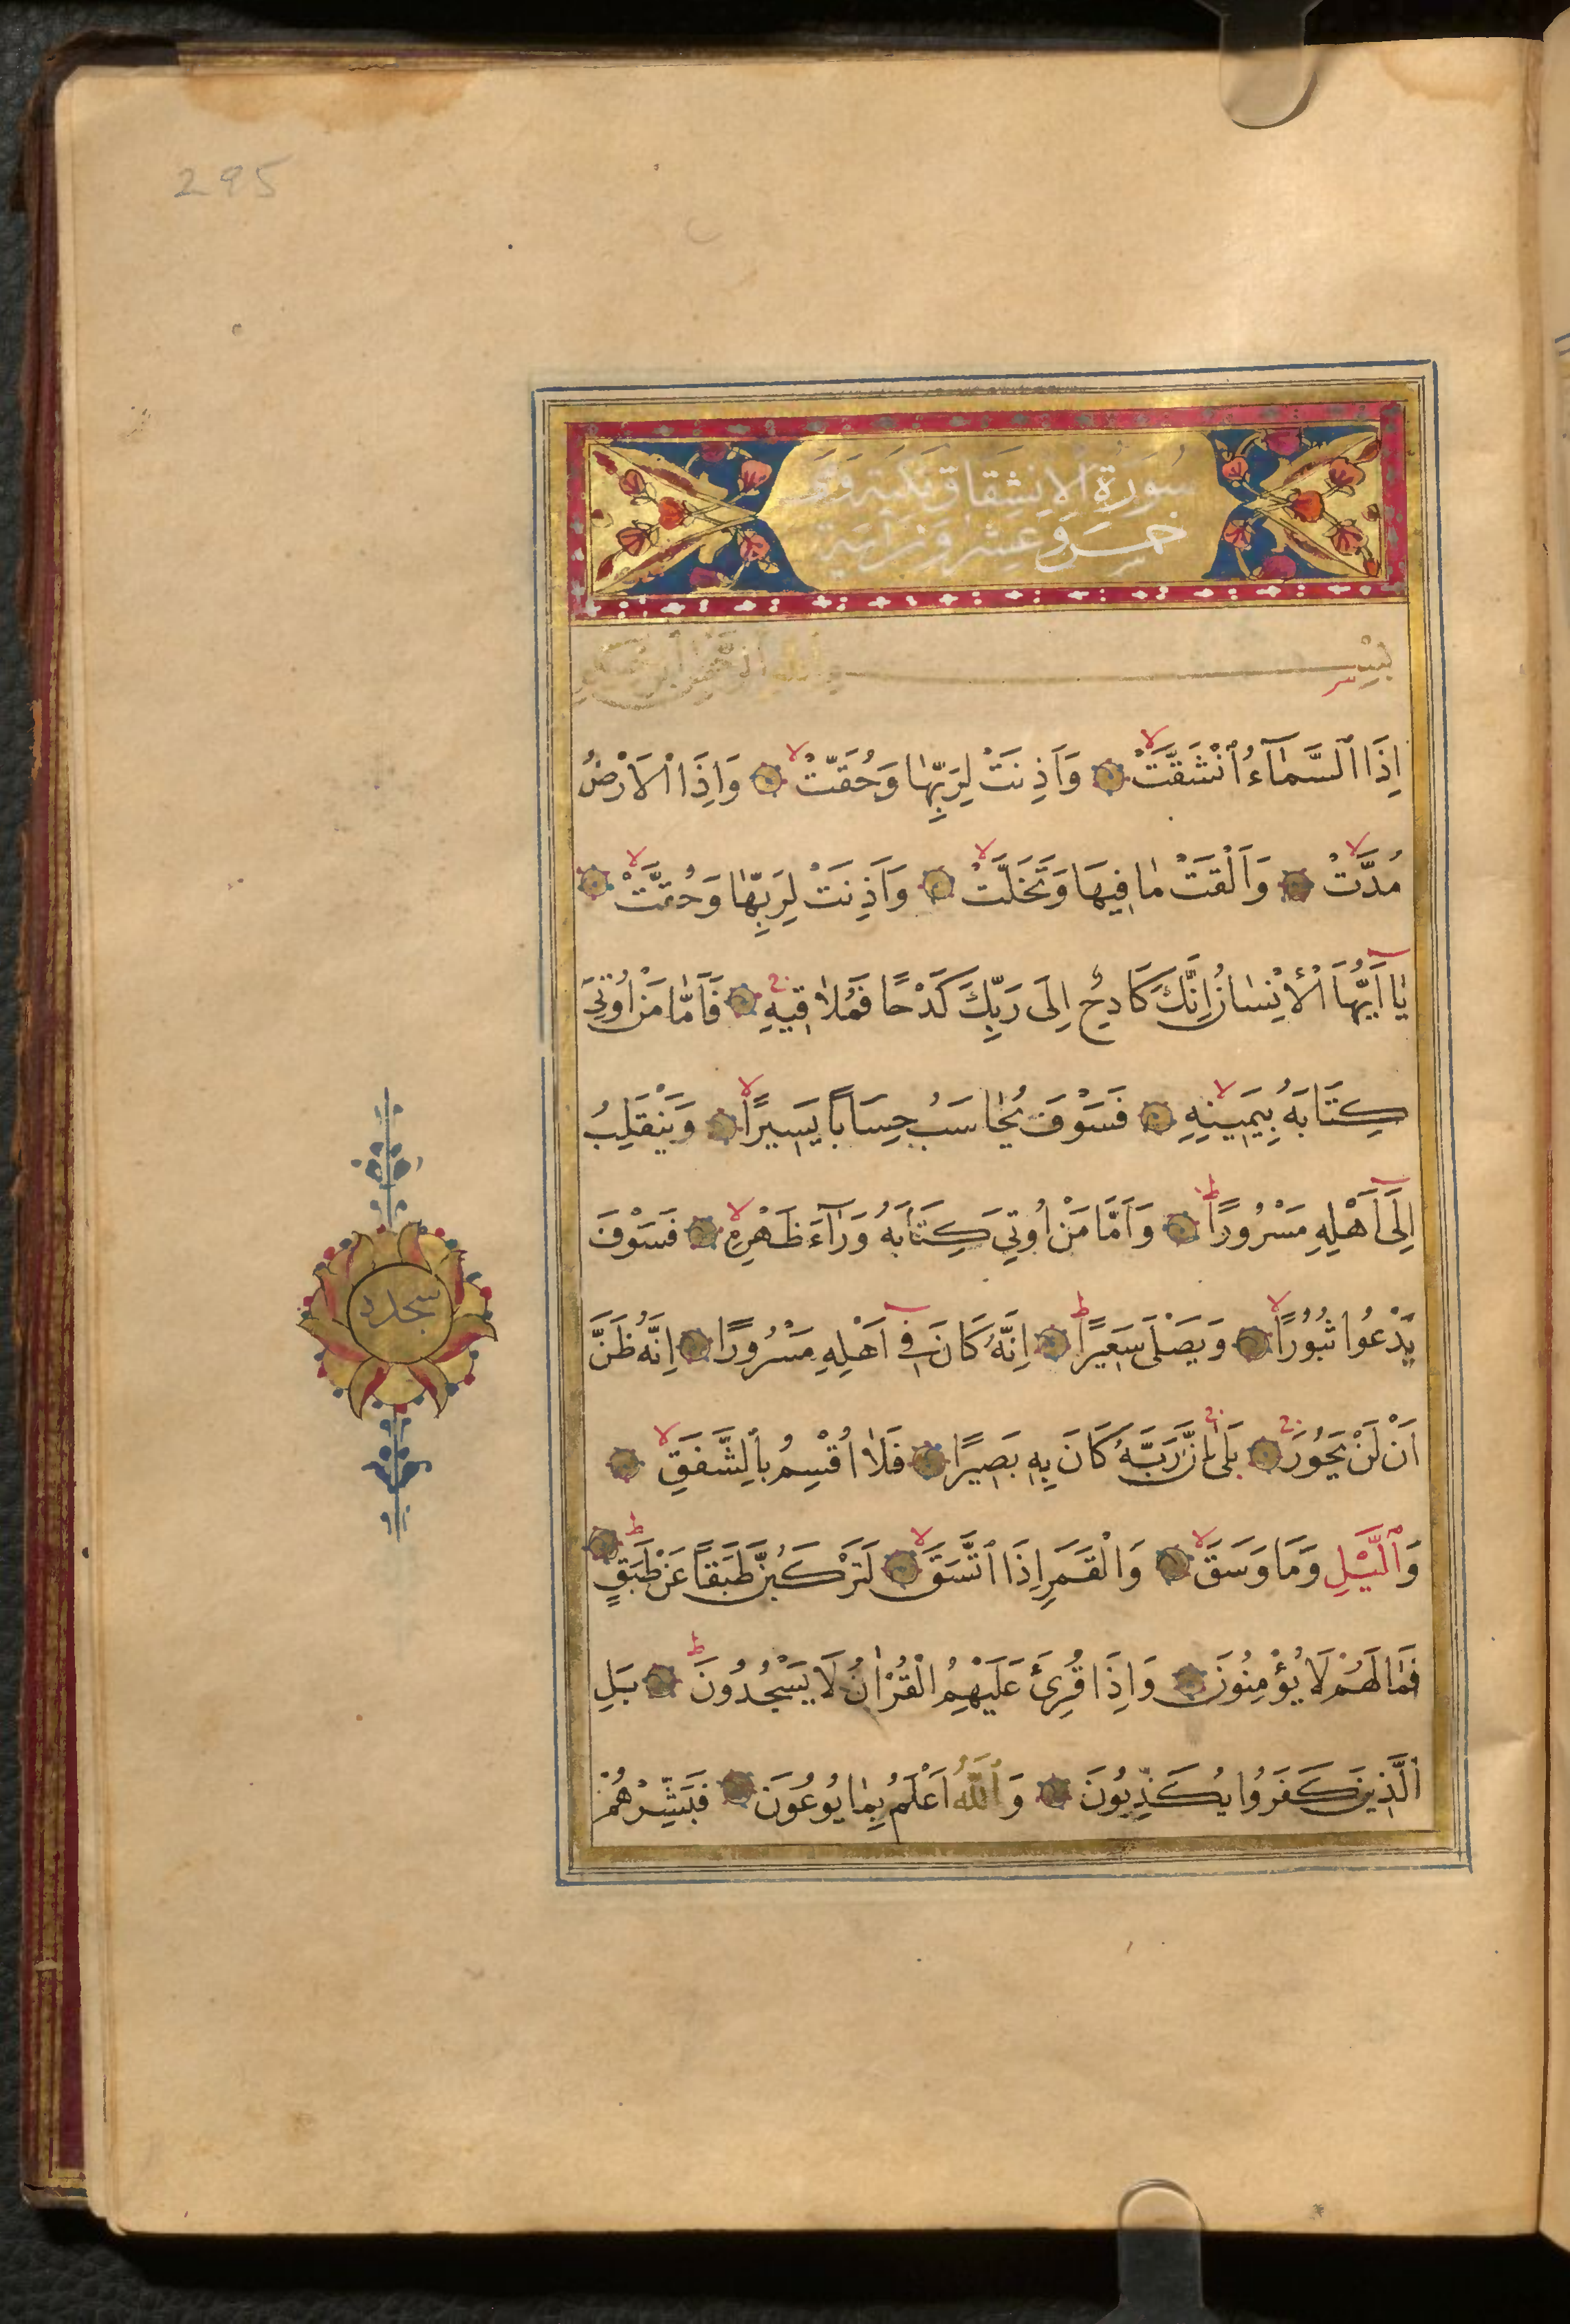 295
سُورَةُ الْاِنْشِقَاقِ مَكِّيَّة وَهِيَ
خَمْسٌ وَعِشْرُونَ اٰيَة
بِسْمِ ٱللّٰهِ ٱلرَّحْمٰنِ ٱلرَّحِيمِ
اِذَا ٱلسَّمَآءُ ٱنْشَقَّتْ وَاَذِنَتْ لِرَبِّهَا وَحُقَّتْ وَاِذَا ٱلْاَرْضُ
مُدَّتْ وَاَلْقَتْ مٰا فِيهَا وَتَخَلَّتْ وَاَذِنَتْ لِرَبِّهٰا وَحُقَّتْ
يٰا اَيُّهَا ٱلْاِنْسٰانُ اِنَّكَ كَادِحٌ اِلَى رَبِّكَ كَدْحًا فَمُلٰاقِيهِ فَاَمّٰا مَنْ اُوتِيَ
كِتَابَهُ بِيَمِينِهِ فَسَوْفَ يُحٰاسَبُ حِسَابًا يَسِيرًا وَيَنْقَلِبُ
اِلَى اَهْلِهِ مَسْرُورًا وَاَمَّا مَنْ اُوتِيَ كِتَابَهُ وَرَآءَ ظَهْرِهِ فَسَوْفَ
يَدْعُوا ثُبُورًا وَيَصْلَى سَعِيرًا اِنَّهُ كَانَ فِي اَهْلِهِ مَسْرُورًا اِنَّهُ ظَنَّ
اَنْ لَنْ يَحُورَ بَلٰى اِنَّ رَبَّهُ كَانَ بِهِ بَصِيرًا فَلٰا اُقْسِمُ بِٱلشَّفَقِ
وَٱلَّيْلِ وَمَا وَسَقَ وَٱلْقَمَرِ اِذَا ٱتَّسَقَ لَتَرْكَبُنَّ طَبَقًا عَنْ طَبَقٍ
فَمٰا لَهُمْ لَا يُؤْمِنُونَ وَاِذَا قُرِئَ عَلَيْهِمُ الْقُرْاٰنُ لَا يَسْجُدُونَ بَلِ
ٱلَّذِينَ كَفَرُوا يُكَذِّبُونَ وَٱللّٰهُ اَعْلَمُ بِمٰا يُوعُونَ فَبَشِّرْهُمْ
سجده